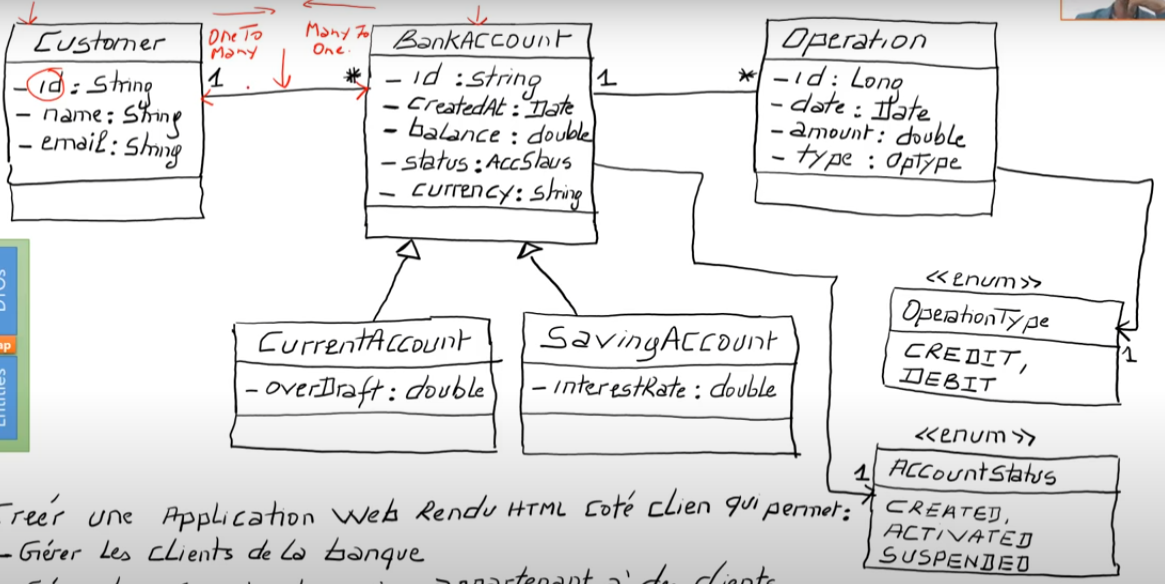 Customer
- id : String
- name: String
- email: String
One To
Many
Many To
One.
1
*
BankAccount
- id : string
- CreatedAt : Date
- balance : double
- status : AccStaus
- currency: string
1
*
Operation
- id : Long
- date : Date
- amount : double
- type : OpType
CurrentAccount
- overDraft : double
SavingAccount
- interestRate : double
<<enum>>
OperationType
CREDIT,
DEBIT
1
<<enum>>
AccountStatus
CREATED,
ACTIVATED
SUSPENDED
1
DTOs
Entities
Créer une Application Web Rendu HTML Coté Clien qui permet :
- Gérer Les clients de La banque
clients